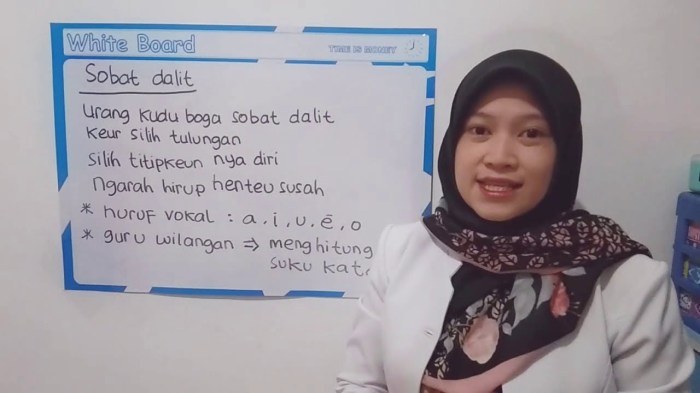 White Board
TIME IS MONEY
Sobat dalit
Urang kudu boga sobat dalit
keur silih tulungan
Silih titipkeun nya diri
Ngarah hirup henteu susah
* huruf vokal : a, i, u, ē, o
* guru wilangan ⇒ menghitung
suku kata